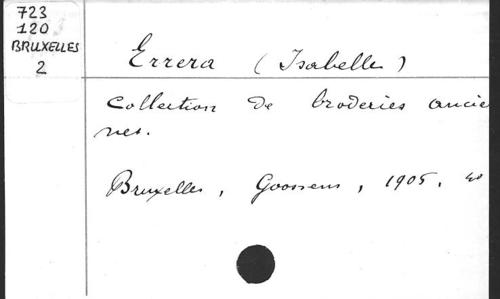 723
120
BRUXELLES
2
Errera (Isabelle)
Collection de broderies ancien
nes.
Bruxelles, Goossens, 1905,